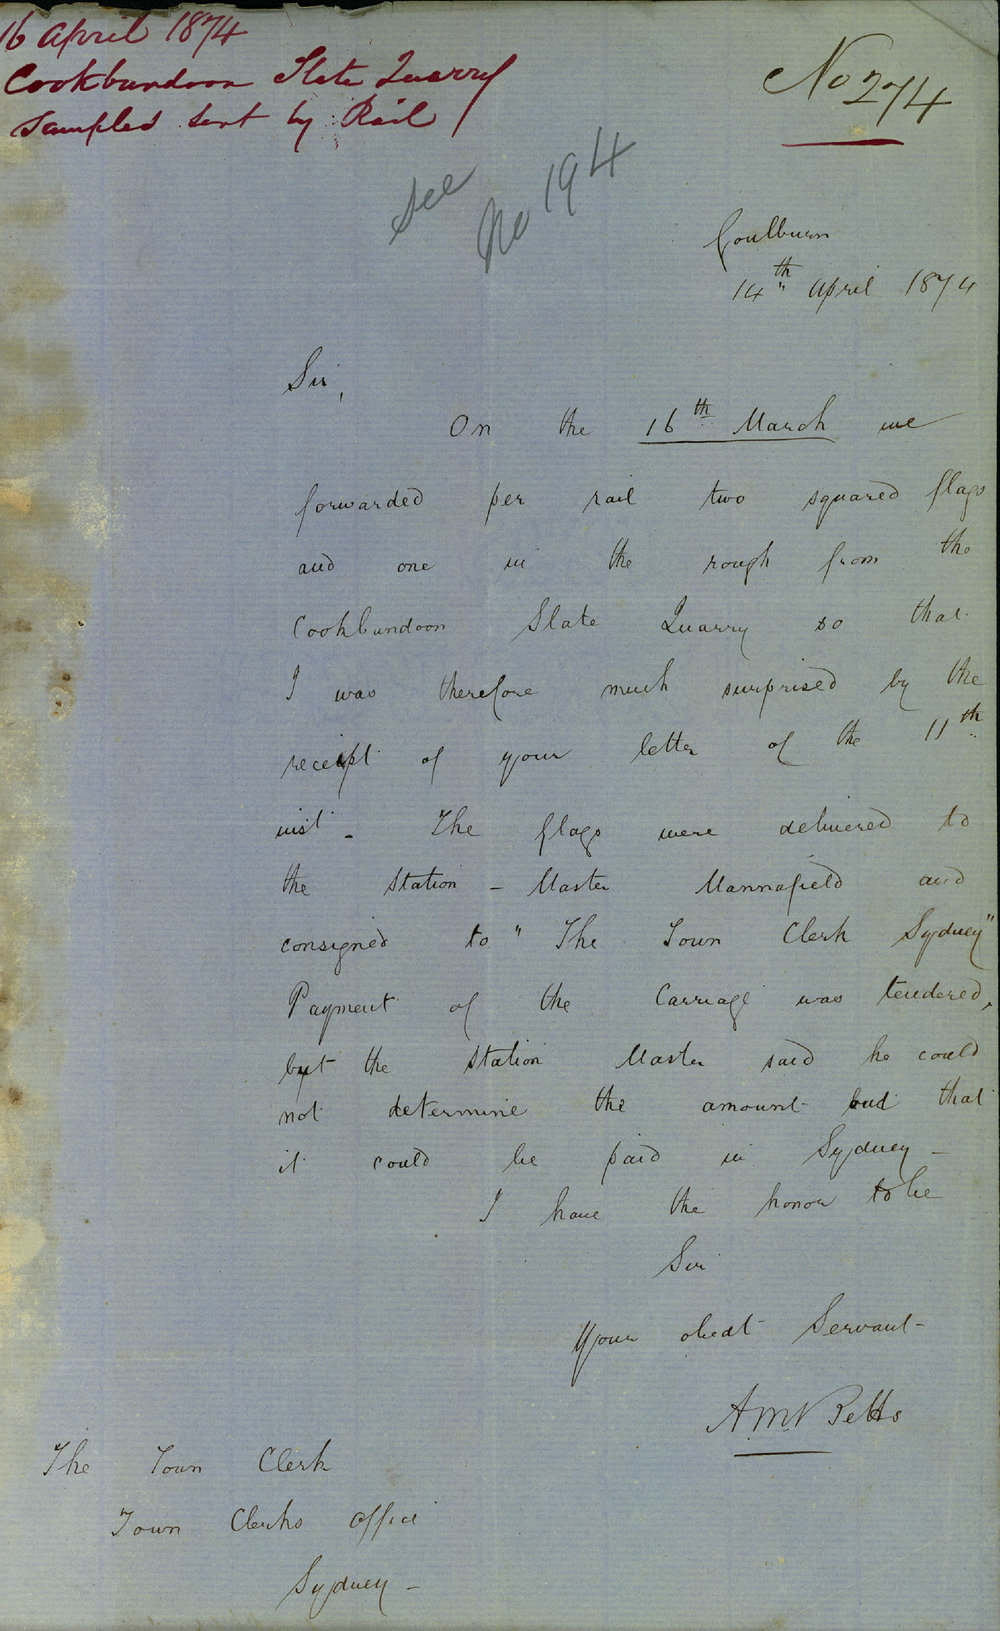 16 April 1874
Cookbundoon Slate Quarry
Samples sent by Rail
No 274
See
No 194
Goulburn
14th April 1874
Sir,
On the 16th March we
forwarded per rail two squared flags
and one in the rough from the
Cookbundoon Slate Quarry so that
I was therefore much surprised by the
receipt of your letter of the 11th
inst - The flags were delivered to
the Station - Master Marrafield and
consigned to "The Town Clerk Sydney"
Payment of the Carriage was tendered,
but the Station Master said he could
not determine the amount and that
it could be paid in Sydney -
I have the honor to be
Sir
Your obedt Servant
Betts
The Town Clerk
Town Clerks Office
Sydney -